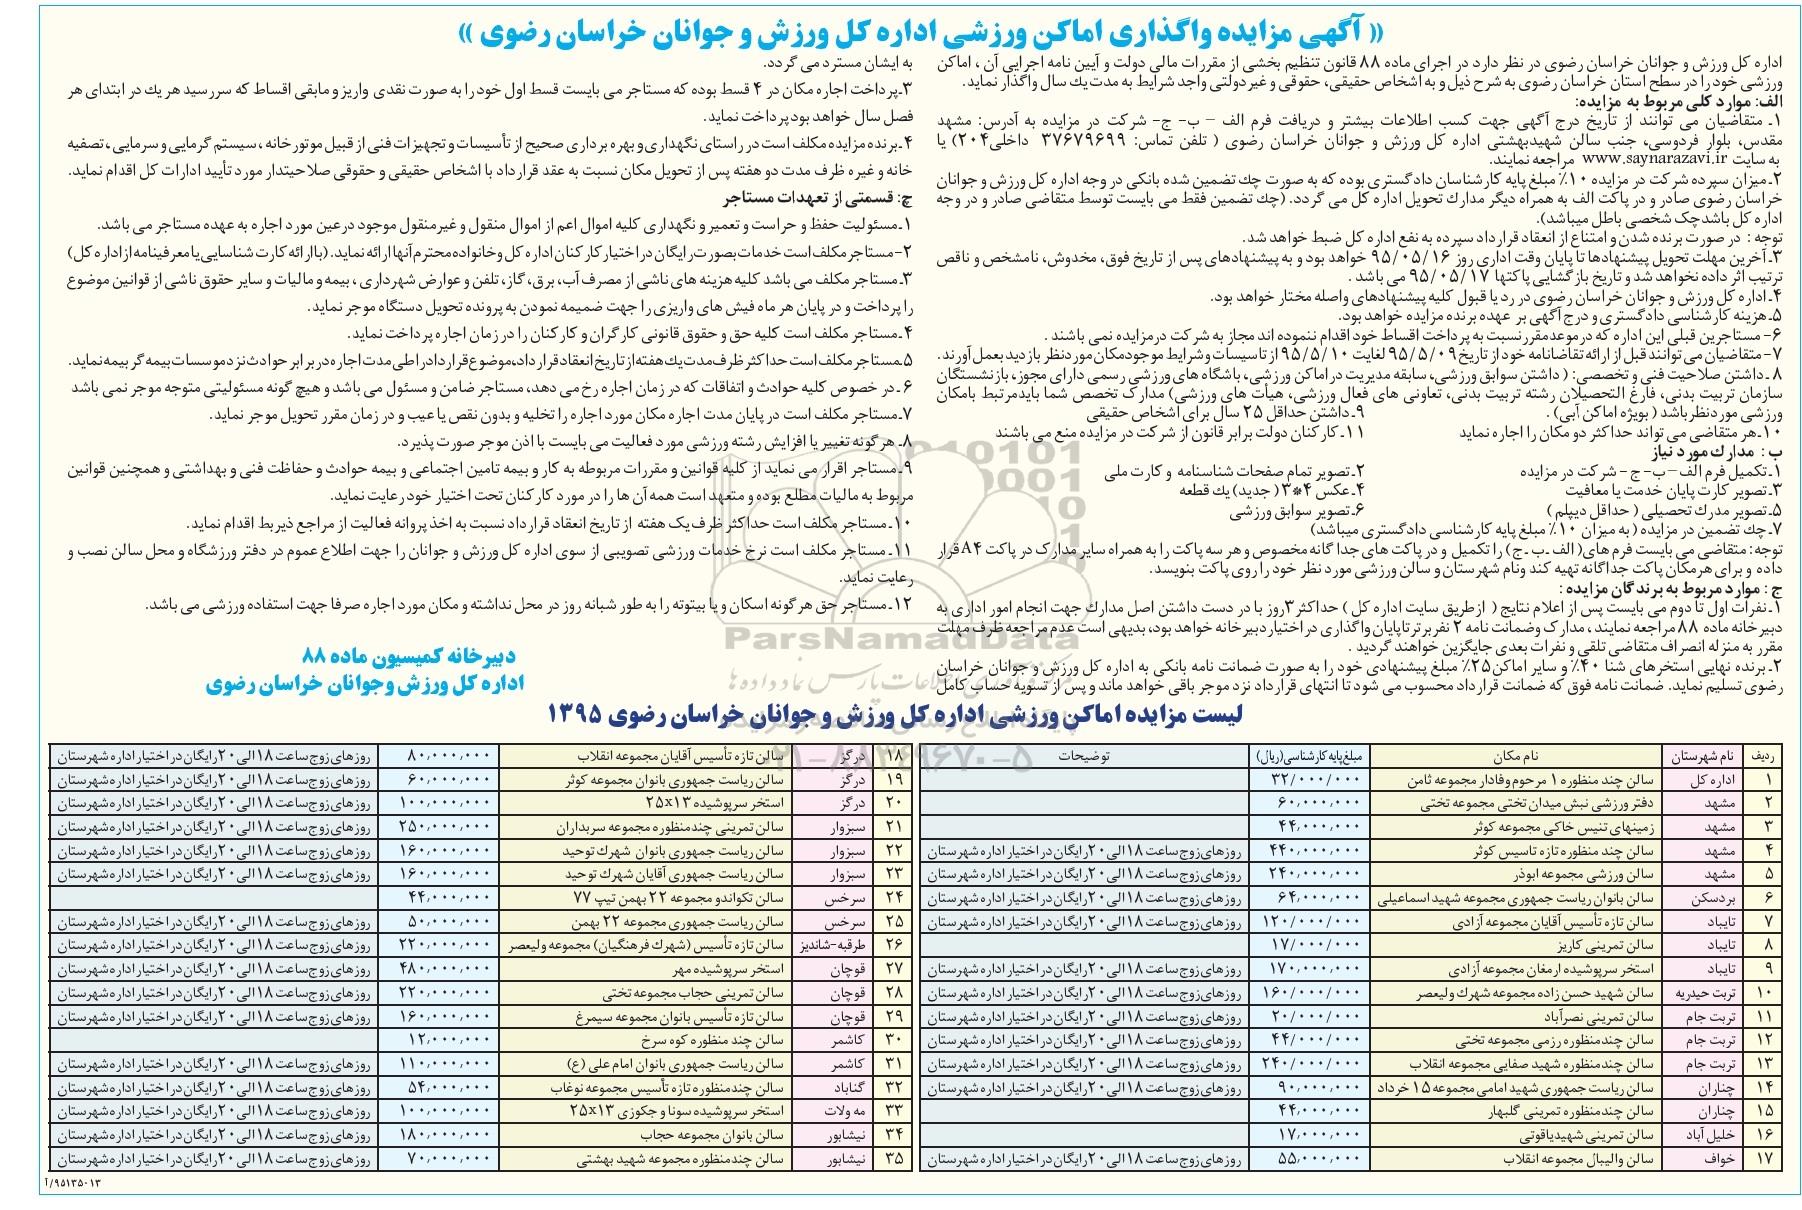 « آگهی مزایده واگذاری اماکن ورزشی اداره کل ورزش و جوانان خراسان رضوی »
اداره کل ورزش و جوانان خراسان رضوی در نظر دارد در اجرای ماده ۸۸ قانون تنظیم بخشی از مقررات مالی دولت و آیین نامه اجرایی آن ، اماکن
ورزشی خود را در سطح استان خراسان رضوی به شرح ذیل و به اشخاص حقیقی، حقوقی و غیردولتی واجد شرایط به مدت یك سال واگذار نماید.
الف: موارد کلی مربوط به مزایده:
۱ـ متقاضیان می توانند از تاریخ درج آگهی جهت کسب اطلاعات بیشتر و دریافت فرم الف – ب- ج- شرکت در مزایده به آدرس: مشهد
مقدس، بلوار فردوسی، جنب سالن شهیدبهشتی اداره کل ورزش و جوانان خراسان رضوی ( تلفن تماس: ۳۷۶۷۹۶۹۹ داخلی۲۰۴) یا
به سایت www.saynarazavi.ir مراجعه نمایند.
۲ـ میزان سپرده شرکت در مزایده ۱۰٪ مبلغ پایه کارشناسان دادگستری بوده که به صورت چك تضمین شده بانکی در وجه اداره کل ورزش و جوانان
خراسان رضوی صادر و در پاکت الف به همراه دیگر مدارك تحویل اداره کل می گردد. (چك تضمین فقط می بایست توسط متقاضی صادر و در وجه
اداره کل باشدچک شخصی باطل میباشد).
توجه : در صورت برنده شدن و امتناع از انعقاد قرارداد سپرده به نفع اداره کل ضبط خواهد شد.
۳ـ آخرین مهلت تحویل پیشنهادها تا پایان وقت اداری روز ۹۵/۰۵/۱۶ خواهد بود و به پیشنهادهای پس از تاریخ فوق، مخدوش، نامشخص و ناقص
ترتیب اثر داده نخواهد شد و تاریخ بازگشایی پاکتها ۹۵/۰۵/۱۷ می باشد .
۴ـ اداره کل ورزش و جوانان خراسان رضوی در رد یا قبول کلیه پیشنهادهای واصله مختار خواهد بود.
۵ـ هزینه کارشناسی دادگستری و درج آگهی بر عهده برنده مزایده خواهد بود.
۶- مستاجرین قبلی این اداره که در موعد مقرر نسبت به پرداخت اقساط خود اقدام ننموده اند مجاز به شرکت در مزایده نمی باشند .
۷- متقاضیان می توانند قبل از ارائه تقاضانامه خود از تاریخ ۹۵/۵/۰۹ لغایت ۹۵/۵/۱۰ از تاسیسات و شرایط موجود مکان مورد نظر بازدید بعمل آورند.
۸ ـ داشتن صلاحیت فنی و تخصصی: ( داشتن سوابق ورزشی، سابقه مدیریت در اماکن ورزشی، باشگاه های ورزشی رسمی دارای مجوز، بازنشستگان
سازمان تربیت بدنی، فارغ التحصیلان رشته تربیت بدنی، تعاونی های فعال ورزشی، هیأت های ورزشی) مدارک تخصص شما باید مرتبط بامکان
ورزشی موردنظر باشد ( بویژه اماکن آبی) . ۹ـ داشتن حداقل ۲۵ سال برای اشخاص حقیقی
۱۰ـ هر متقاضی می تواند حداکثر دو مکان را اجاره نماید ۱۱ـ کارکنان دولت برابر قانون از شرکت در مزایده منع می باشند
ب : مدارك مورد نیاز
۱ـ تکمیل فرم الف – ب- ج – شرکت در مزایده ۲ـ تصویر تمام صفحات شناسنامه و کارت ملی
۳ـ تصویر کارت پایان خدمت یا معافیت ۴ـ عکس ۴*۳ ( جدید) یك قطعه
۵ـ تصویر مدرك تحصیلی ( حداقل دیپلم ) ۶ـ تصویر سوابق ورزشی
۷ـ چك تضمین در مزایده ( به میزان ۱۰٪ مبلغ پایه کارشناسی دادگستری میباشد)
توجه: متقاضی می بایست فرم های( الف ـ ب ـ ج) را تکمیل و در پاکت های جداگانه مخصوص و هر سه پاکت را به همراه سایر مدارک در پاکت A۴ قرار
داده و برای هر مکان پاکت جداگانه تهیه کند ونام شهرستان و سالن ورزشی مورد نظر خود را روی پاکت بنویسد.
ج : موارد مربوط به برندگان مزایده :
۱ـ نفرات اول تا دوم می بایست پس از اعلام نتایج ( ازطریق سایت اداره کل ) حداکثر ۳روز با در دست داشتن اصل مدارك جهت انجام امور اداری به
دبیرخانه ماده ۸۸ مراجعه نمایند ، مدارک وضمانت نامه ۲ نفر برتر تا پایان واگذاری در اختیار دبیرخانه خواهد بود، بدیهی است عدم مراجعه ظرف مهلت
مقرر به منزله انصراف متقاضی تلقی و نفرات بعدی جایگزین خواهند گردید .
۲ـ برنده نهایی استخرهای شنا ۴۰٪ و سایر اماکن۲۵٪ مبلغ پیشنهادی خود را به صورت ضمانت نامه بانکی به اداره کل ورزش و جوانان خراسان
رضوی تسلیم نماید. ضمانت نامه فوق که ضمانت قرارداد محسوب می شود تا انتهای قرارداد نزد موجر باقی خواهد ماند و پس از تسویه حساب کامل
به ایشان مسترد می گردد.
۳ـ پرداخت اجاره مکان در ۴ قسط بوده که مستاجر می بایست قسط اول خود را به صورت نقدی واریز و مابقی اقساط که سررسید هر یك در ابتدای هر
فصل سال خواهد بود پرداخت نماید.
۴ـ برنده مزایده مکلف است در راستای نگهداری و بهره برداری صحیح از تأسیسات و تجهیزات فنی از قبیل موتورخانه ، سیستم گرمایی و سرمایی ، تصفیه
خانه و غیره ظرف مدت دو هفته پس از تحویل مکان نسبت به عقد قرارداد با اشخاص حقیقی و حقوقی صلاحیتدار مورد تأیید ادارات کل اقدام نماید.
چ: قسمتی از تعهدات مستاجر
۱ـ مسئولیت حفظ و حراست و تعمیر و نگهداری کلیه اموال اعم از اموال منقول و غیرمنقول موجود درعین مورد اجاره به عهده مستاجر می باشد.
۲- مستاجر مکلف است خدمات بصورت رایگان در اختیار کارکنان اداره کل و خانواده محترم آنها ارائه نماید. (با ارائه کارت شناسایی یا معرفینامه از اداره کل)
۳ـ مستاجر مکلف می باشد کلیه هزینه های ناشی از مصرف آب، برق، گاز، تلفن و عوارض شهرداری ، بیمه و مالیات و سایر حقوق ناشی از قوانین موضوع
را پرداخت و در پایان هر ماه فیش های واریزی را جهت ضمیمه نمودن به پرونده تحویل دستگاه موجر نماید.
۴ـ مستاجر مکلف است کلیه حق و حقوق قانونی کارگران و کارکنان را در زمان اجاره پرداخت نماید.
۵ـ مستاجر مکلف است حداکثر ظرف مدت یك هفته از تاریخ انعقاد قرارداد، موضوع قرارداد را طی مدت اجاره در برابر حوادث نزد موسسات بیمه گر بیمه نماید.
۶ ـ در خصوص کلیه حوادث و اتفاقات که در زمان اجاره رخ می دهد، مستاجر ضامن و مسئول می باشد و هیچ گونه مسئولیتی متوجه موجر نمی باشد
۷ـ مستاجر مکلف است در پایان مدت اجاره مکان مورد اجاره را تخلیه و بدون نقص یا عیب و در زمان مقرر تحویل موجر نماید.
۸ـ هرگونه تغییر یا افزایش رشته ورزشی مورد فعالیت می بایست با اذن موجر صورت پذیرد.
۹ـ مستاجر اقرار می نماید از کلیه قوانین و مقررات مربوطه به کار و بیمه تامین اجتماعی و بیمه حوادث و حفاظت فنی و بهداشتی و همچنین قوانین
مربوط به مالیات مطلع بوده و متعهد است همه آن ها را در مورد کارکنان تحت اختیار خود رعایت نماید.
۱۰ـ مستاجر مکلف است حداکثر ظرف یک هفته از تاریخ انعقاد قرارداد نسبت به اخذ پروانه فعالیت از مراجع ذیربط اقدام نماید.
۱۱ـ مستاجر مکلف است نرخ خدمات ورزشی تصویبی از سوی اداره کل ورزش و جوانان را جهت اطلاع عموم در دفتر ورزشگاه و محل سالن نصب و
رعایت نماید.
۱۲ـ مستاجر حق هرگونه اسکان و یا بیتوته را به طور شبانه روز در محل نداشته و مکان مورد اجاره صرفا جهت استفاده ورزشی می باشد.
دبیرخانه کمیسیون ماده ۸۸
اداره کل ورزش وجوانان خراسان رضوی
ParsNamadData
۰۲۱-۸۸۳۴۹۶۷۰-۵
لیست مزایده اماکن ورزشی اداره کل ورزش و جوانان خراسان رضوی ۱۳۹۵
ردیف نام شهرستان نام مکان مبلغ پایه کارشناسی(ریال) توضیحات
۱ اداره کل سالن چند منظوره ۱ مرحوم وفادار مجموعه ثامن ۳۲/۰۰۰/۰۰۰
۲ مشهد دفتر ورزشی نبش میدان تختی مجموعه تختی ۶۰،۰۰۰،۰۰۰
۳ مشهد زمینهای تنیس خاکی مجموعه کوثر ۴۴،۰۰۰،۰۰۰
۴ مشهد سالن چند منظوره تازه تاسیس کوثر ۴۴۰،۰۰۰،۰۰۰ روزهای زوج ساعت ۱۸الی ۲۰رایگان در اختیار اداره شهرستان
۵ مشهد سالن ورزشی مجموعه ابوذر ۲۴۰،۰۰۰،۰۰۰ روزهای زوج ساعت ۱۸الی ۲۰رایگان در اختیار اداره شهرستان
۶ بردسکن سالن بانوان ریاست جمهوری مجموعه شهید اسماعیلی ۶۴،۰۰۰،۰۰۰ روزهای زوج ساعت ۱۸الی ۲۰رایگان در اختیار اداره شهرستان
۷ تایباد سالن تازه تأسیس آقایان مجموعه آزادی ۱۲۰/۰۰۰/۰۰۰ روزهای زوج ساعت ۱۸الی ۲۰رایگان در اختیار اداره شهرستان
۸ تایباد سالن تمرینی کاریز ۱۷/۰۰۰/۰۰۰
۹ تایباد استخر سرپوشیده ارمغان مجموعه آزادی ۱۷۰،۰۰۰،۰۰۰ روزهای زوج ساعت ۱۸الی ۲۰رایگان در اختیار اداره شهرستان
۱۰ تربت حیدریه سالن شهید حسن زاده مجموعه شهرك ولیعصر ۱۶۰/۰۰۰/۰۰۰ روزهای زوج ساعت ۱۸الی ۲۰رایگان در اختیار اداره شهرستان
۱۱ تربت جام سالن تمرینی نصرآباد ۲۰/۰۰۰/۰۰۰ روزهای زوج ساعت ۱۸الی ۲۰رایگان در اختیار اداره شهرستان
۱۲ تربت جام سالن چندمنظوره رزمی مجموعه تختی ۴۴/۰۰۰/۰۰۰ روزهای زوج ساعت ۱۸الی ۲۰رایگان در اختیار اداره شهرستان
۱۳ تربت جام سالن چندمنظوره شهید صفایی مجموعه انقلاب ۲۴۰/۰۰۰/۰۰۰ روزهای زوج ساعت ۱۸الی ۲۰رایگان در اختیار اداره شهرستان
۱۴ چناران سالن ریاست جمهوری شهید امامی مجموعه ۱۵ خرداد ۹۰،۰۰۰،۰۰۰ روزهای زوج ساعت ۱۸الی ۲۰رایگان در اختیار اداره شهرستان
۱۵ چناران سالن چندمنظوره تمرینی گلبهار ۴۴،۰۰۰،۰۰۰
۱۶ خلیل آباد سالن تمرینی شهیدیاقوتی ۱۷،۰۰۰،۰۰۰
۱۷ خواف سالن والیبال مجموعه انقلاب ۵۵،۰۰۰،۰۰۰ روزهای زوج ساعت ۱۸الی ۲۰رایگان در اختیار اداره شهرستان
۱۸ درگز سالن تازه تأسیس آقایان مجموعه انقلاب ۸۰،۰۰۰،۰۰۰ روزهای زوج ساعت ۱۸الی ۲۰رایگان در اختیار اداره شهرستان
۱۹ درگز سالن ریاست جمهوری بانوان مجموعه کوثر ۶۰،۰۰۰،۰۰۰ روزهای زوج ساعت ۱۸الی ۲۰رایگان در اختیار اداره شهرستان
۲۰ درگز استخر سرپوشیده ۲۵x۱۳ ۱۰۰،۰۰۰،۰۰۰ روزهای زوج ساعت ۱۸الی ۲۰رایگان در اختیار اداره شهرستان
۲۱ سبزوار سالن تمرینی چندمنظوره مجموعه سربداران ۲۵۰،۰۰۰،۰۰۰ روزهای زوج ساعت ۱۸الی ۲۰رایگان در اختیار اداره شهرستان
۲۲ سبزوار سالن ریاست جمهوری بانوان شهرك توحید ۱۶۰،۰۰۰،۰۰۰ روزهای زوج ساعت ۱۸الی ۲۰رایگان در اختیار اداره شهرستان
۲۳ سبزوار سالن ریاست جمهوری آقایان شهرك توحید ۱۶۰،۰۰۰،۰۰۰ روزهای زوج ساعت ۱۸الی ۲۰رایگان در اختیار اداره شهرستان
۲۴ سرخس سالن تکواندو مجموعه ۲۲ بهمن تیپ ۷۷ ۴۴،۰۰۰،۰۰۰
۲۵ سرخس سالن ریاست جمهوری مجموعه ۲۲ بهمن ۵۰،۰۰۰،۰۰۰ روزهای زوج ساعت ۱۸الی ۲۰رایگان در اختیار اداره شهرستان
۲۶ طرقبه-شاندیز سالن تازه تأسیس (شهرك فرهنگیان) مجموعه ولیعصر ۲۲۰،۰۰۰،۰۰۰ روزهای زوج ساعت ۱۸الی ۲۰رایگان در اختیار اداره شهرستان
۲۷ قوچان استخر سرپوشیده مهر ۴۸۰،۰۰۰،۰۰۰ روزهای زوج ساعت ۱۸الی ۲۰رایگان در اختیار اداره شهرستان
۲۸ قوچان سالن تمرینی حجاب مجموعه تختی ۲۲۰،۰۰۰،۰۰۰ روزهای زوج ساعت ۱۸الی ۲۰رایگان در اختیار اداره شهرستان
۲۹ قوچان سالن تازه تأسیس بانوان مجموعه سیمرغ ۱۶۰،۰۰۰،۰۰۰ روزهای زوج ساعت ۱۸الی ۲۰رایگان در اختیار اداره شهرستان
۳۰ کاشمر سالن چند منظوره کوه سرخ ۱۲،۰۰۰،۰۰۰
۳۱ کاشمر سالن ریاست جمهوری بانوان امام علی (ع) ۱۱۰،۰۰۰،۰۰۰ روزهای زوج ساعت ۱۸الی ۲۰رایگان در اختیار اداره شهرستان
۳۲ گناباد سالن چندمنظوره تازه تأسیس مجموعه نوغاب ۵۴،۰۰۰،۰۰۰ روزهای زوج ساعت ۱۸الی ۲۰رایگان در اختیار اداره شهرستان
۳۳ مه ولات استخر سرپوشیده سونا و جکوزی ۲۵x۱۳ ۱۰۰،۰۰۰،۰۰۰ روزهای زوج ساعت ۱۸الی ۲۰رایگان در اختیار اداره شهرستان
۳۴ نیشابور سالن بانوان مجموعه حجاب ۱۸۰،۰۰۰،۰۰۰ روزهای زوج ساعت ۱۸الی ۲۰رایگان در اختیار اداره شهرستان
۳۵ نیشابور سالن چندمنظوره مجموعه شهید بهشتی ۷۰،۰۰۰،۰۰۰ روزهای زوج ساعت ۱۸الی ۲۰رایگان در اختیار اداره شهرستان
آ/۹۵۱۳۵۰۱۳